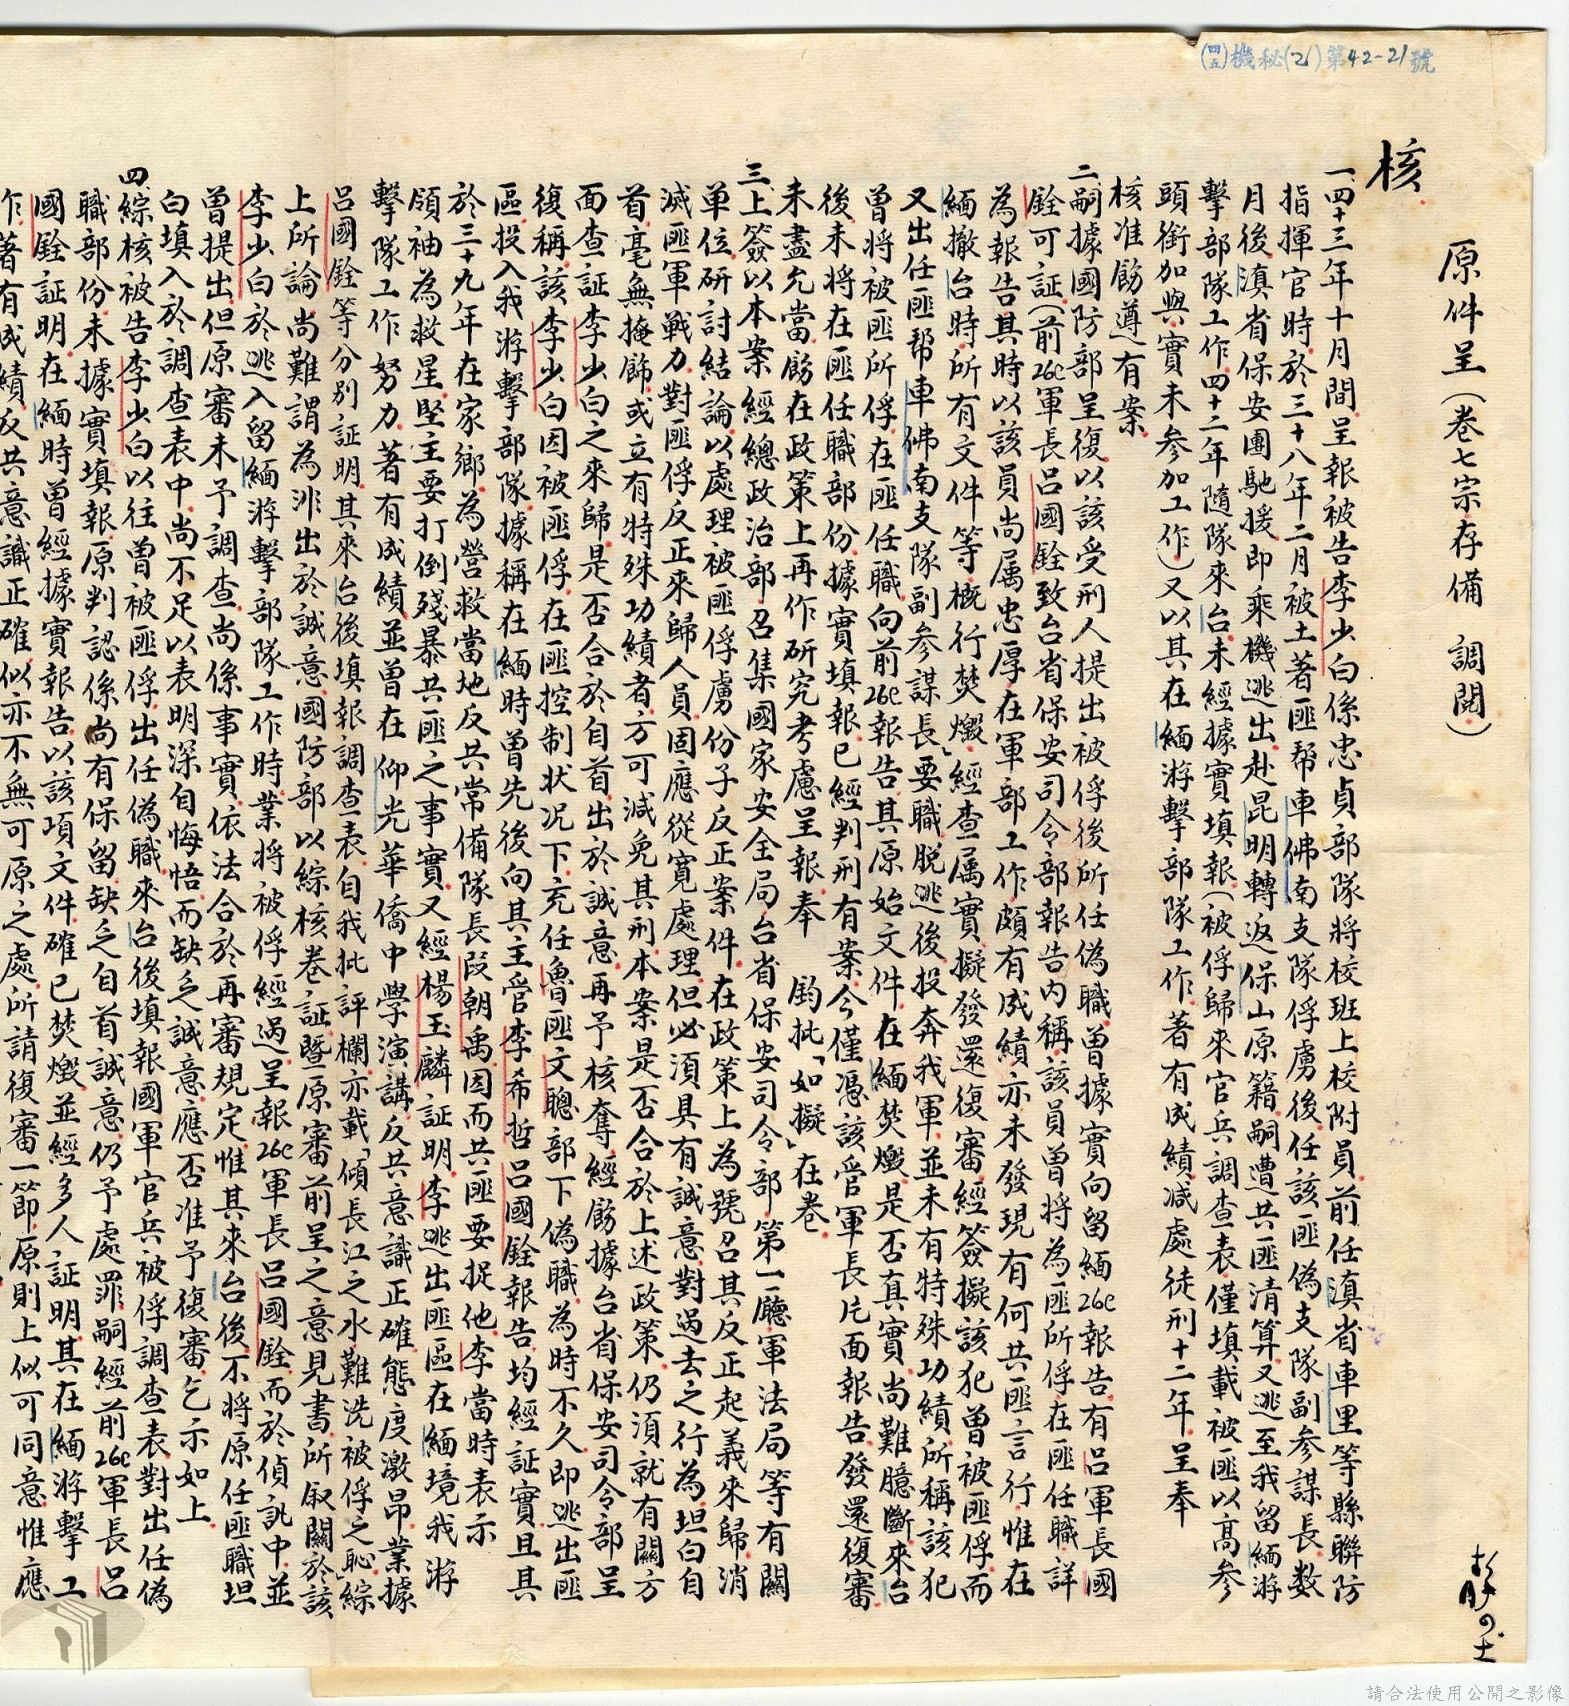 (四五)機秘(乙)第42-21號
原件呈(卷七宗存備 調閱)
核
一、四十三年十月間呈報被告李少白係忠貞部隊將校班上校附員前任滇省車里等縣聯防
指揮官時於三十八年二月被土著匪帮車佛南支隊俘虜後任該匪偽支隊副參謀長數
月後滇省保安團馳援即乘機逃出赴昆明轉返保山原籍嗣遭共匪清算又逃至我留緬游
擊部隊工作四十二年隨隊來台未經據實填報(被俘歸來官兵調查表僅填載被匪以高參
頭銜加與實未參加工作)又以其在緬游擊部隊工作著有成績減處徒刑十二年呈奉
核准飭遵有案
二、嗣據國防部呈復以該受刑人提出被俘後所任偽職曾據實向留緬26C報告有呂軍長國
銓可証(前26C軍長呂國銓致台省保安司令部報告內稱該員曾將為匪所俘在匪任職詳
為報告其時以該員尚屬忠厚在軍部工作頗有成績亦未發現有何共匪言行惟在
緬撤台時所有文件等概行焚燬」經查屬實擬發還復審經簽擬該犯曾被匪俘而
又出任匪帮車佛南支隊副參謀長要職脫逃後投奔我軍並未有特殊功績所稱該犯
曾將被匪所俘在匪任職向前26C報告其原始文件在緬焚燬是否真實尚難臆斷來台
後未將在匪任職部份據實填報已經判刑有案今僅憑該管軍長片面報告發還復審
未盡允當飭在政策上再作研究考慮呈報奉 鈞批「如擬」在卷
三、上簽以本案經總政治部召集國家安全局台省保安司令部第一廳軍法局等有關
單位研討結論以處理被匪俘虜份子反正案件在政策上為號召其反正起義來歸消
滅匪軍戰力對匪俘反正來歸人員固應從寬處理但必須具有誠意對過去之行為坦白自
首毫無掩飾或立有特殊功績者方可減免其刑本案是否合於上述政策仍須就有關方
面查証李少白之來歸是否合於自首出於誠意再予核奪經飭據台省保安司令部呈
復稱該李少白因被匪俘在匪控制状况下充任魯匪文聰部下偽職為時不久即逃出匪
區投入我游擊部隊據稱在緬時曾先後向其主管李希哲呂國銓報告均經証實且其
於三十九年在家鄉為營救當地反共常備隊長段朝禹因而共匪要捉他李當時表示
領袖為救星堅主要打倒殘暴共匪之事實又經楊玉麟証明李逃出匪區在緬境我游
擊隊工作努力著有成績並曾在仰光華僑中學演講反共意識正確態度激昂業據
呂國銓等分別証明其來台後填報調查表自我批評欄亦載「傾長江之水難洗被俘之恥」綜
上所論尚難謂為非出於誠意國防部以綜核卷証暨原審前呈之意見書所敘關於該
李少白於逃入留緬游擊部隊工作時業將被俘經過呈報26C軍長呂國銓而於偵訊中並
曾提出但原審未予調查尚係事實依法合於再審規定惟其來台後不將原任匪職坦
白填入於調查表中尚不足以表明深自悔悟而缺乏誠意應否准予復審乞示如上
四、綜核被告李少白以往曾被匪俘出任偽職來台後填報國軍官兵被俘調查表對出任偽
職部份未據實填報原判認係尚有保留缺乏自首誠意仍予處罪嗣經前26C軍長呂
國銓証明在緬時曾經據實報告以該項文件確已焚燬並經多人証明其在緬游擊工
作著有成績反共意識正確似亦不無可原之處所請復審一節原則上似可同意惟應
請合法使用公開之影像